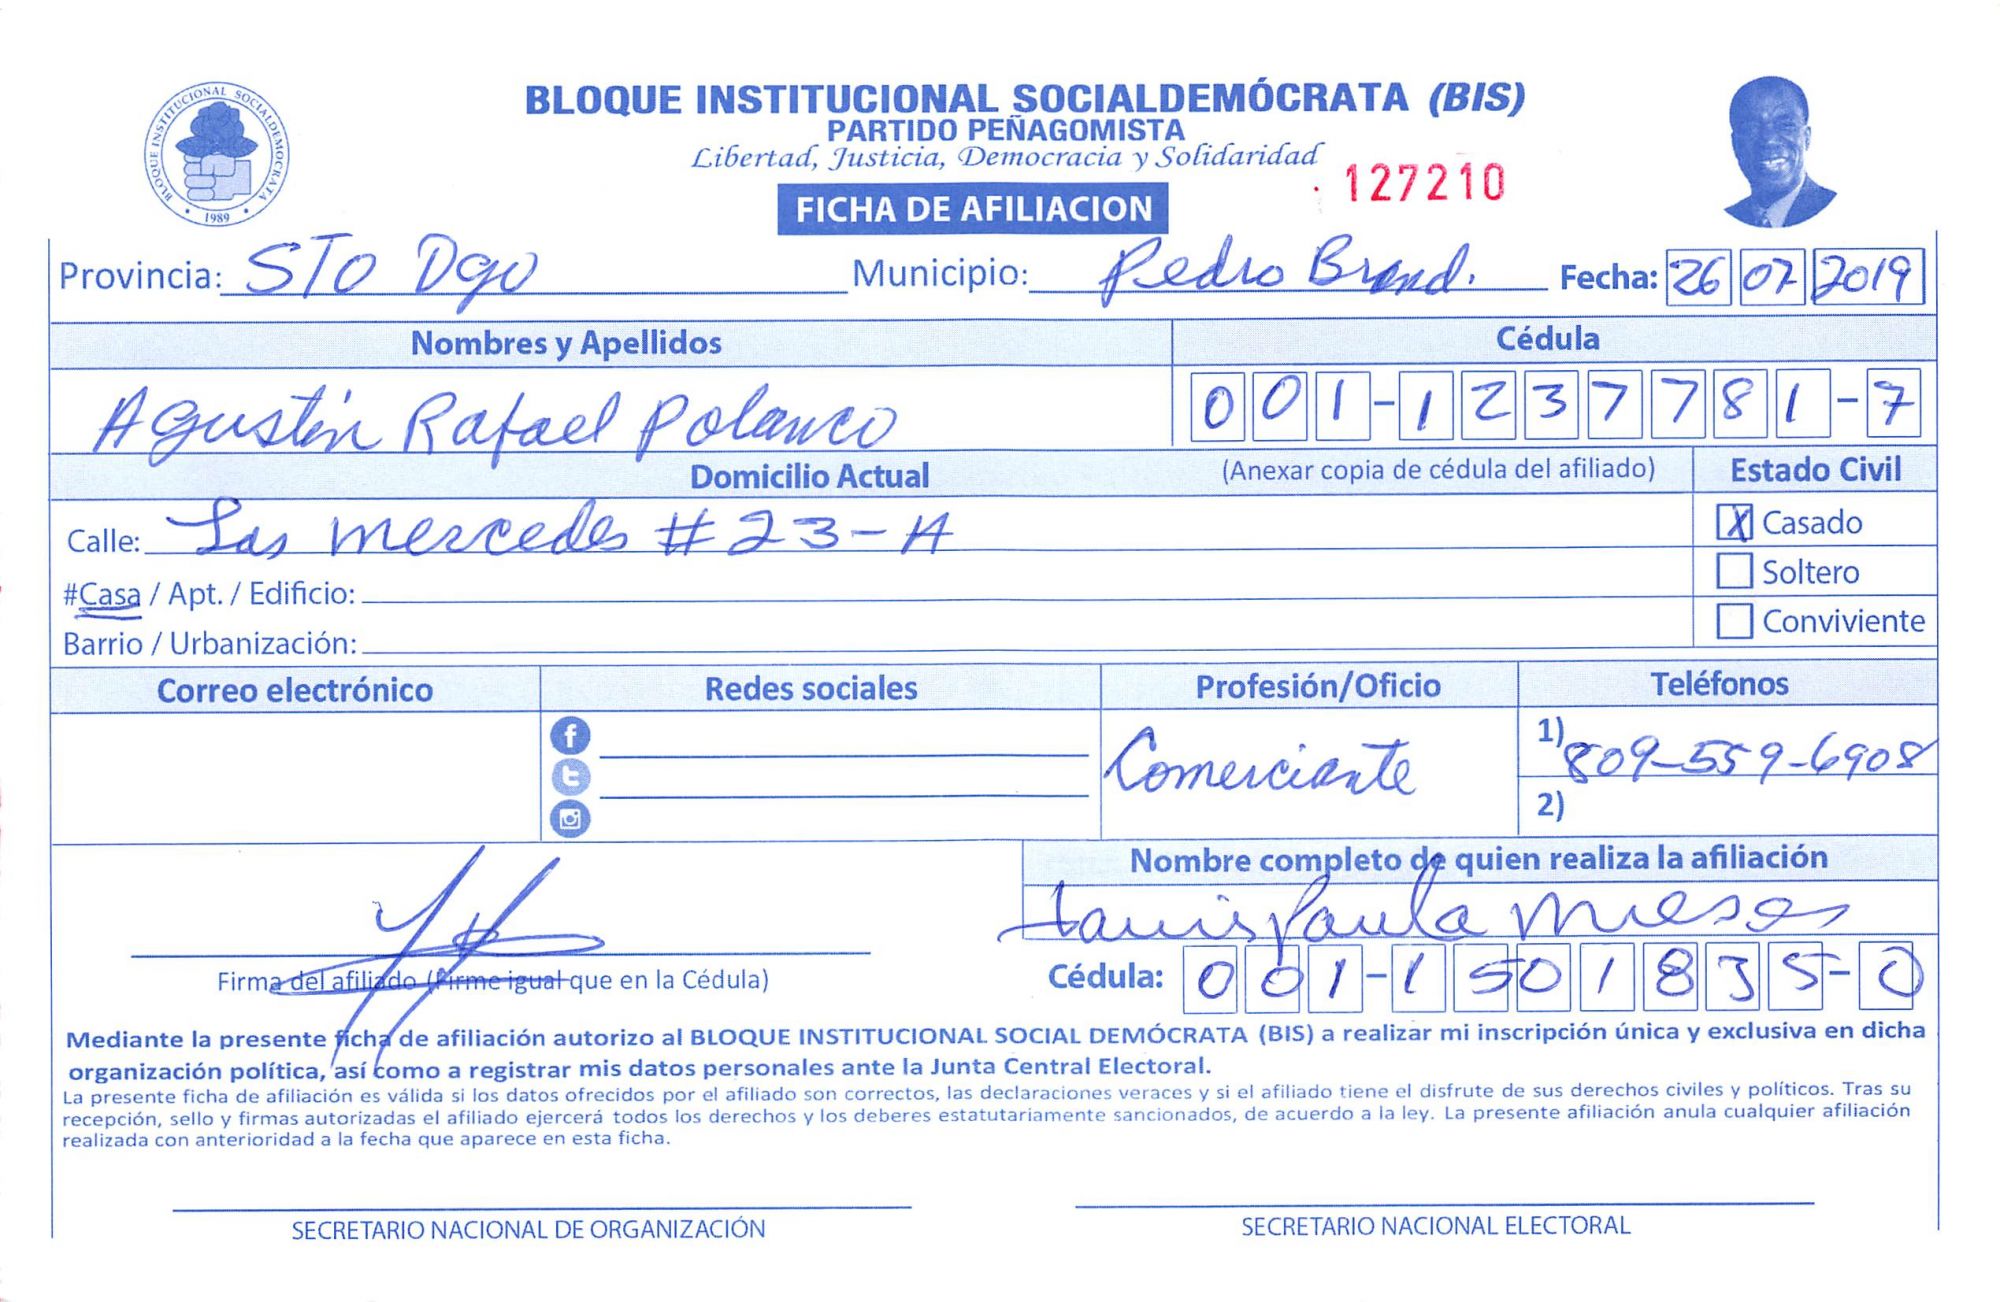 BLOQUE INSTITUCIONAL SOCIALDEMOCRATA
1989
BLOQUE INSTITUCIONAL SOCIALDEMÓCRATA (BIS)
PARTIDO PEÑAGOMISTA
Libertad, Justicia, Democracia y Solidaridad
127210
FICHA DE AFILIACION
Provincia: STO Dgo Municipio: Pedro Brand. Fecha: 26 07 2019
Nombres y Apellidos Cédula
Agustin Rafael Polanco 001-1237781-7
Domicilio Actual (Anexar copia de cédula del afiliado) Estado Civil
Calle: Las mercedes #23-A X Casado
#Casa / Apt. / Edificio: Soltero
Barrio / Urbanización: Conviviente
Correo electrónico Redes sociales Profesión/Oficio Teléfonos
Comerciante 1) 809-559-6908
2)
Nombre completo de quien realiza la afiliación
Paula Mieses
Firma del afiliado (Firme igual que en la Cédula) Cédula: 001-1501835-0
Mediante la presente ficha de afiliación autorizo al BLOQUE INSTITUCIONAL SOCIAL DEMÓCRATA (BIS) a realizar mi inscripción única y exclusiva en dicha
organización política, así como a registrar mis datos personales ante la Junta Central Electoral.
La presente ficha de afiliación es válida si los datos ofrecidos por el afiliado son correctos, las declaraciones veraces y si el afiliado tiene el disfrute de sus derechos civiles y políticos. Tras su
recepción, sello y firmas autorizadas el afiliado ejercerá todos los derechos y los deberes estatutariamente sancionados, de acuerdo a la ley. La presente afiliación anula cualquier afiliación
realizada con anterioridad a la fecha que aparece en esta ficha.
SECRETARIO NACIONAL DE ORGANIZACIÓN SECRETARIO NACIONAL ELECTORAL